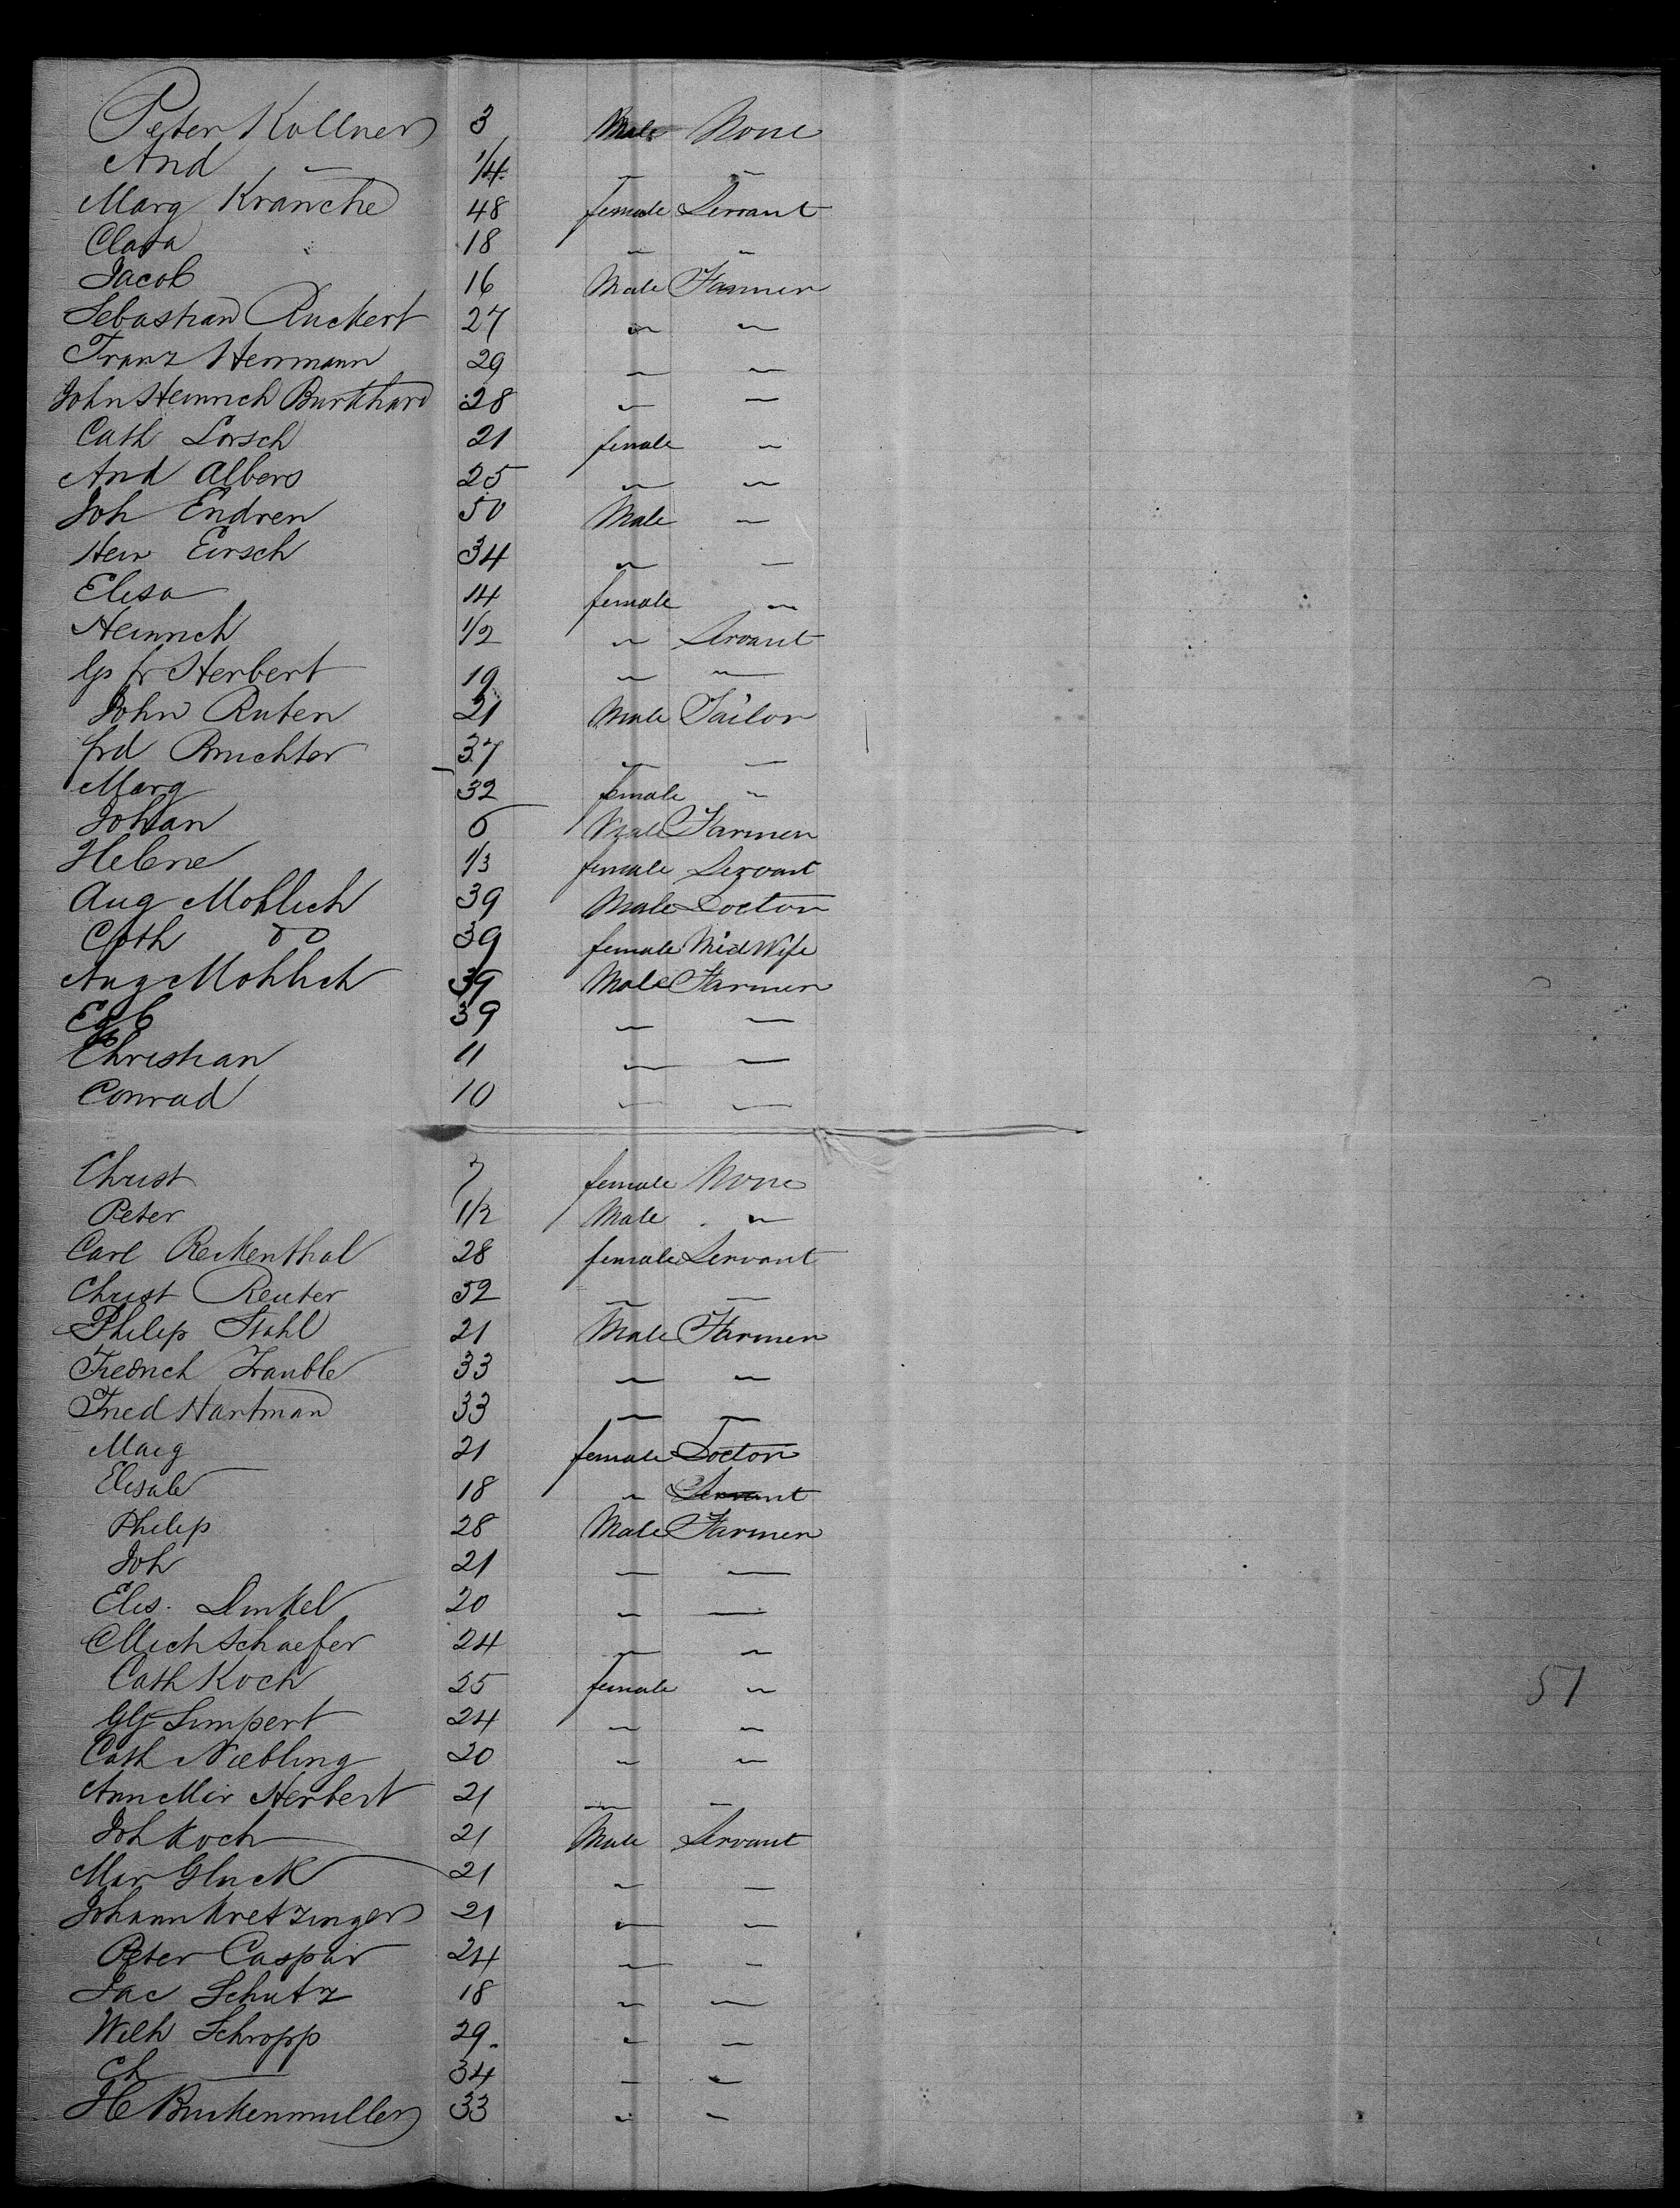 Peter Kollner 3 Male None
And — 1/4 — —
Marg Kranche 48 female Servant
Clara 18 — —
Jacob 16 Male Farmer
Sebastian Ruckert 27 — —
Franz Herrmann 29 — —
John Heinrich Burkhard 28 — —
Cath Lorsch 21 female —
And Albers 25 — —
Joh Endren 50 Male —
Hein Eirsch 34 — —
Elisa 14 female —
Heinrich 1/2 — Servant
Herbert 19 — —
John Ruten 21 Male Tailor
frd Bruchter 37 — —
Marg 32 female —
Johan 6 Male Farmer
Helene 1/3 female Servant
Aug Mohlich 39 Male Doctor
Cath do 39 female Mid Wife
Aug Mohlich 39 Male Farmer
39 — —
Christian 11 — —
Conrad 10 — —
Christ 7 female None
Peter 1/2 Male —
Carl Reckenthal 28 female Servant
Christ Reuter 52 — —
Philip Stahl 21 Male Farmer
Fredrich Trauble 33 — —
Fred Hartman 33 — —
Marg 21 female Doctor
Elisab 18 — Servant
Philip 28 Male Farmer
Joh 21 — —
Elis. Dinkel 20 — —
Mich Schaefer 24 — —
Cath Koch 25 female —
Limpert 24 — —
Cath Niebling 20 — —
Ann Mar Herbert 21 — —
Joh Koch 21 Male Servant
Mar Gluck 21 — —
Johann Kretzinger 21 — —
Peter Caspar 24 — —
Jac Schutz 18 — —
Wilh Schropp 29 — —
Ch — 34 — —
H Bruckenmuller 33 — —
51